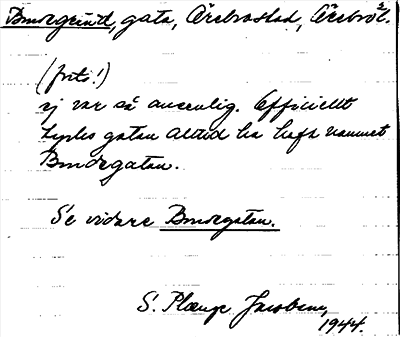 Bmdegränd, gata, Örebro stad, Örebro l.
(forts!)
ej var så ansenlig. Officiellt
synes gatan alltid ha haft namnet
Bmdegatan.
Se vidare Bmdegatan.
S. Plænge Jacobson,
1944.